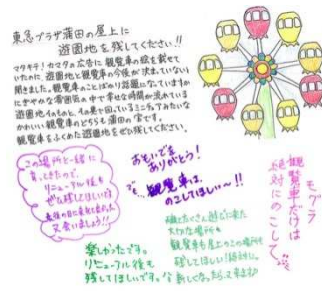 東急プラザ蒲田の屋上に
遊園地を残してください!!
マタキテ!カマタの広告に観覧車の絵を載せて
いたのに、遊園地と観覧車の今後が決まっていないと
聞きました。観覧車のことばかり話題になっていますが
にぎやかな蒲田の中で幸せな時間が流れている
遊園地そのものと、その奥で回っているミニチュアみたいな
かわいい観覧車のどちらも蒲田の宝です。
観覧車をふくめた遊園地をぜひ残してください。
この場所と一緒に
育ってきたので、
リニューアル後も
ぜひ残してほしいです
又会いましょう!!
おもいでを
ありがとう!
観覧車は、
のこしてほしい〜!!
モグラ
観覧車だけは
絶対にのこして
楽しかったです。
リニューアル後も
残してほしいです。
大切な場所
観覧車も屋上のこの場所も
残してほしい!絶対に。